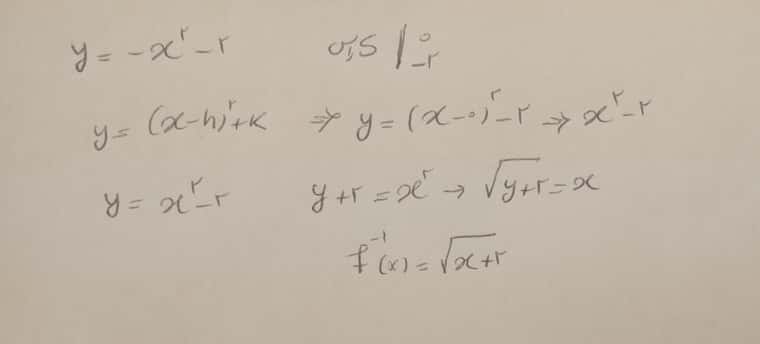 y = -x^۲ - ۲ | ۰ -۲
y = (x-h)^۲ + k ⇒ y = (x-۰)^۲ - ۲ → x^۲ - ۲
y = x^۲ - ۲ y+۲ = x^۲ → √(y+۲) = x
f^-۱(x) = √(x+۲)